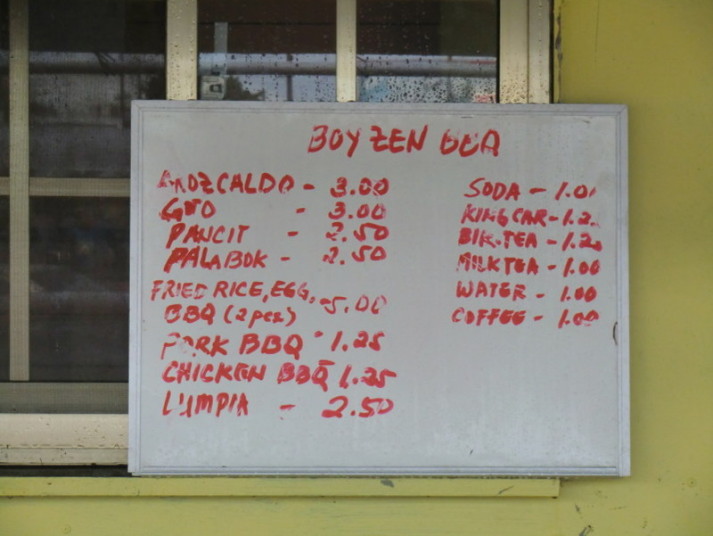 BOY ZEN BBQ
AROZCALDO - 3.00
GOTO - 3.00
PANCIT - 2.50
PALABOK - 2.50
FRIED RICE, EGG,
BBQ (2pcs) -5.00
PORK BBQ - 1.25
CHICKEN BBQ 1.25
LUMPIA - 2.50
SODA - 1.0
KING CAR - 1.2
TEA - 1.2
MILK TEA - 1.00
WATER - 1.00
COFFEE - 1.00